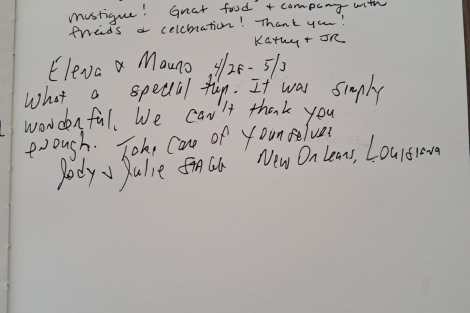 Mustique! Great food + company with
friends & celebration! Thank you!
Kathy + JR
Elena & Mauro 4/28 - 5/3
What a special trip. It was simply
wonderful. We can't thank you
enough. Take care of yourselves
Jody & Julie STAGG New Orleans, Louisiana